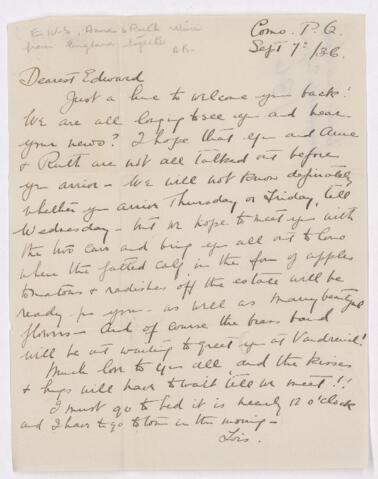 E.W.S, Anne & Ruth return
from England together
A.R.
Como. P.Q.
Sept 7th/36.
Dearest Edward
Just a line to welcome you back!
We are all longing to see you and hear
your news? I hope that you and Anne
& Ruth are not all talked out before
you arrive - We will not know definitely
whether you arrive Thursday or Friday, till
Wednesday - but we hope to meet you with
the two cars and bring you all out to Como
where the fatted calf in the form of apples
tomatoes & radishes off the estate will be
ready for you - as well as many beautiful
flowers - and of course the brass band
will be out waiting to greet you at Vaudreuil!
Much love to you all, and the kisses
& hugs will have to wait till we meet!!
I must go to bed it is nearly 12 o'clock
and I have to go to town in the morning -
Lois.